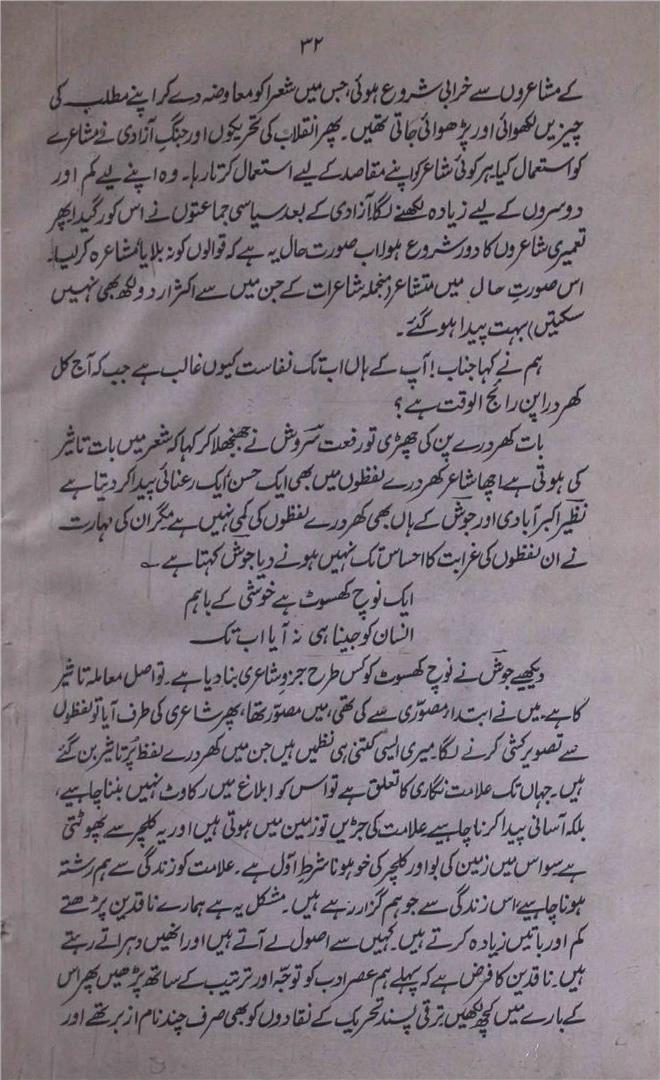 ۳۲
کے مشاعروں سے خرابی شروع ہوئی، جس میں شعرا کو معاوضہ دے کر اپنے مطلب کی
چیزیں لکھوائی اور پڑھوائی جاتی تھیں۔ پھر انقلاب کی تحریکوں اور جنگِ آزادی نے مشاعرے
کو استعمال کیا۔ ہر کوئی شاعر کو اپنے مقاصد کے لیے استعمال کرتا رہا۔ وہ اپنے لیے کم اور
دوسروں کے لیے زیادہ لکھنے لگا۔ آزادی کے بعد سیاسی جماعتوں نے اس کو رگیدا۔ پھر
تعمیری شاعروں کا دور شروع ہوا۔ اب صورت حال یہ ہے کہ قوالوں کو نہ بلایا مشاعرہ کر لیا۔
اس صورتِ حال میں متشاعر (منجملہ شاعرات کے جن میں سے اکثر اردو لکھ بھی نہیں
سکتیں) بہت پیدا ہو گئے۔
ہم نے کہا جناب! آپ کے ہاں اب تک نفاست کیوں غالب ہے جب کہ آج کل
کھردرا پن رائج الوقت ہے؟
بات کھردرے پن کی چھڑی تو رفعت سروش نے جھنجھلا کر کہا کہ شعر میں بات تاثیر
کی ہوتی ہے۔ اچھا شاعر کھردرے لفظوں میں بھی ایک حسن، ایک رعنائی پیدا کر دیتا ہے
نظیر اکبر آبادی اور جوش کے ہاں بھی کھردرے لفظوں کی کمی نہیں ہے مگر ان کی مہارت
نے ان لفظوں کی غرابت کا احساس تک نہیں ہونے دیا۔ جوش کہتا ہے ؎
ایک نوچ کھسوٹ ہے خوشی کے باہم
انسان کو جینا ہی نہ آیا اب تک
دیکھیے جوش نے نوچ کھسوٹ کو کس طرح جزوِ شاعری بنا دیا ہے۔ تو اصل معاملہ تاثیر
کا ہے۔ میں نے ابتدا مصوّری سے کی تھی، میں مصوّر تھا، پھر شاعری کی طرف آیا تو لفظوں
سے تصویر کشی کرنے لگا۔ میری ایسی کتنی ہی نظمیں ہیں جن میں کھردرے لفظ پُر تاثیر بن گئے
ہیں۔ جہاں تک علامت نگاری کا تعلق ہے تو اس کو ابلاغ میں رکاوٹ نہیں بننا چاہیے،
بلکہ آسانی پیدا کرنا چاہیے۔ علامت کی جڑیں تو زمین میں ہوتی ہیں اور یہ کلچر سے پھوٹتی
ہے سو اس میں زمین کی بو اور کلچر کی خو ہونا شرطِ اوّل ہے۔ علامت کو زندگی سے ہم رشتہ
ہونا چاہیے، اس زندگی سے جو ہم گزار رہے ہیں۔ مشکل یہ ہے ہمارے ناقدین پڑھتے
کم اور باتیں زیادہ کرتے ہیں۔ کہیں سے اصول لے آتے ہیں اور انھیں دہراتے رہتے
ہیں۔ ناقدین کا فرض ہے کہ پہلے ہم عصر ادب کو توجّہ اور ترتیب کے ساتھ پڑھیں پھر اس
کے بارے میں کچھ لکھیں۔ ترقی پسند تحریک کے نقادوں کو بھی صرف چند نام ازبر تھے اور